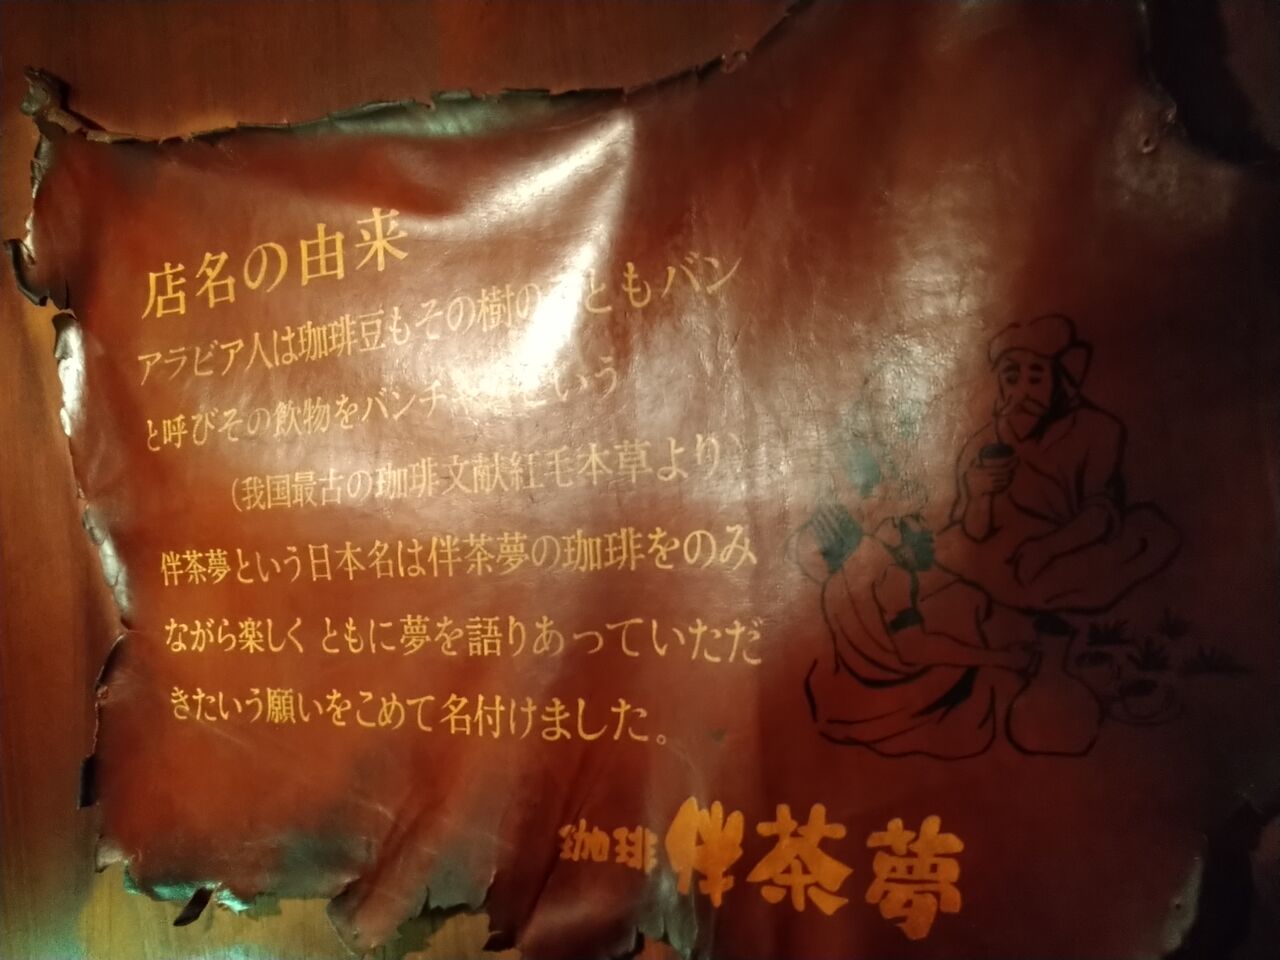 店名の由来
アラビア人は珈琲豆もその樹の ともバン
と呼びその飲物をバンチ という
(我国最古の珈琲文献紅毛本草より)
伴茶夢という日本名は伴茶夢の珈琲をのみ
ながら楽しくともに夢を語りあっていただ
きたいう願いをこめて名付けました。
珈琲 伴茶夢